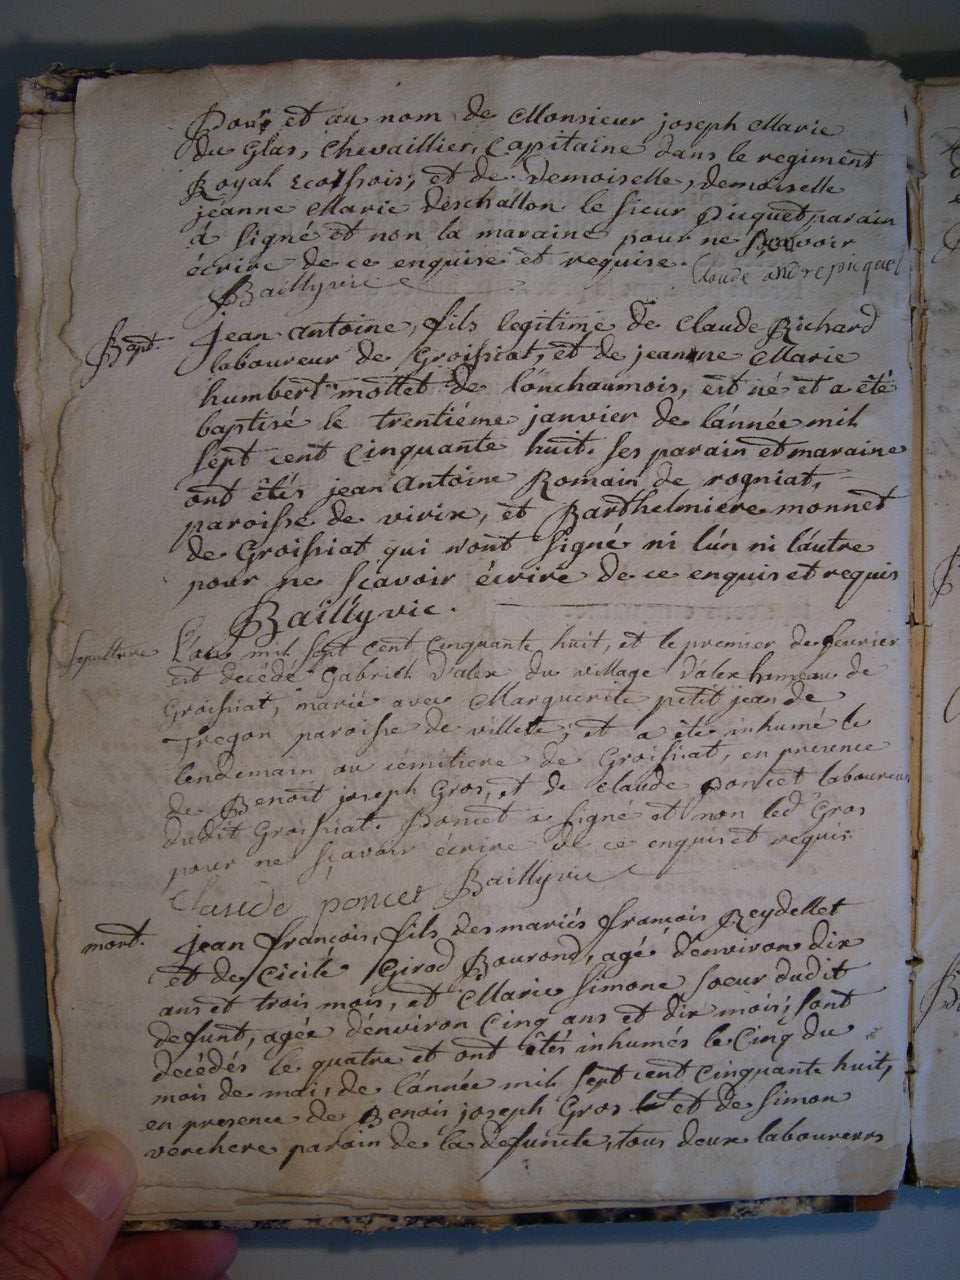 Pour et au nom de Monsieur joseph Marie
du Glas, Chevaillier, Capitaine dans le regiment
Royal Ecossois; et de Demoiselle, demoiselle
jéanne Marie deschallon le sieur Picquet parain
á signé et non la maraine pour ne sçavoir
écrire de ce enquise et requise. Claude andre picquet
Baillyvic
Bapt. jean antoine, fils legitime de Claude Richard
laboureur de Groissiat, et de jeanne Marie
humbert mottet de lonchaumois, est né et a êté
baptisé le trentiéme janvier de lánnée mil
sept cent Cinquante huit. ses parain et maraine
ont êtés jean Antoine Romain de rogniat,
paroisse de virix, et Barthelmiere monnet
de Groissiat qui n'ont signé ni lún ni láutre
pour ne scavoir écrire de ce enquis et requis
Baillyvic.
sepulture L'an mil sept cent Cinquante huit, et le premier de fevrier
est decédé Gabriel D'alex du village d'alex hameau de
Groissiat, marié avec Marguerite petit jean de
Tregon paroisse de villete; et a êté inhumé le
lendemain au cemitiere de Groissiat, en presence
de Benoit joseph Gros, et de Claude poncet laboureur
dudit Groissiat. Poncet a signé et non led Gros
pour ne sçavoir écrire de ce enquis et requis
Claude poncet Baillyvic
mort. jean françois, fils des mariés françois Reydellet
et de Cicile Girod Bourond, agé d'environ dix
ans et trois mois, et Marie Simone soeur dudit
defunt, agée dénviron Cinq ans et dix mois; sont
decédés le quatre et ont êtés inhumés le Cinq du
mois de mai, de lánnée mil sept cent Cinquante huit,
en presence de Benois joseph Gros et de Simon
verchere parain de la defuncte, tous deux laboureurs